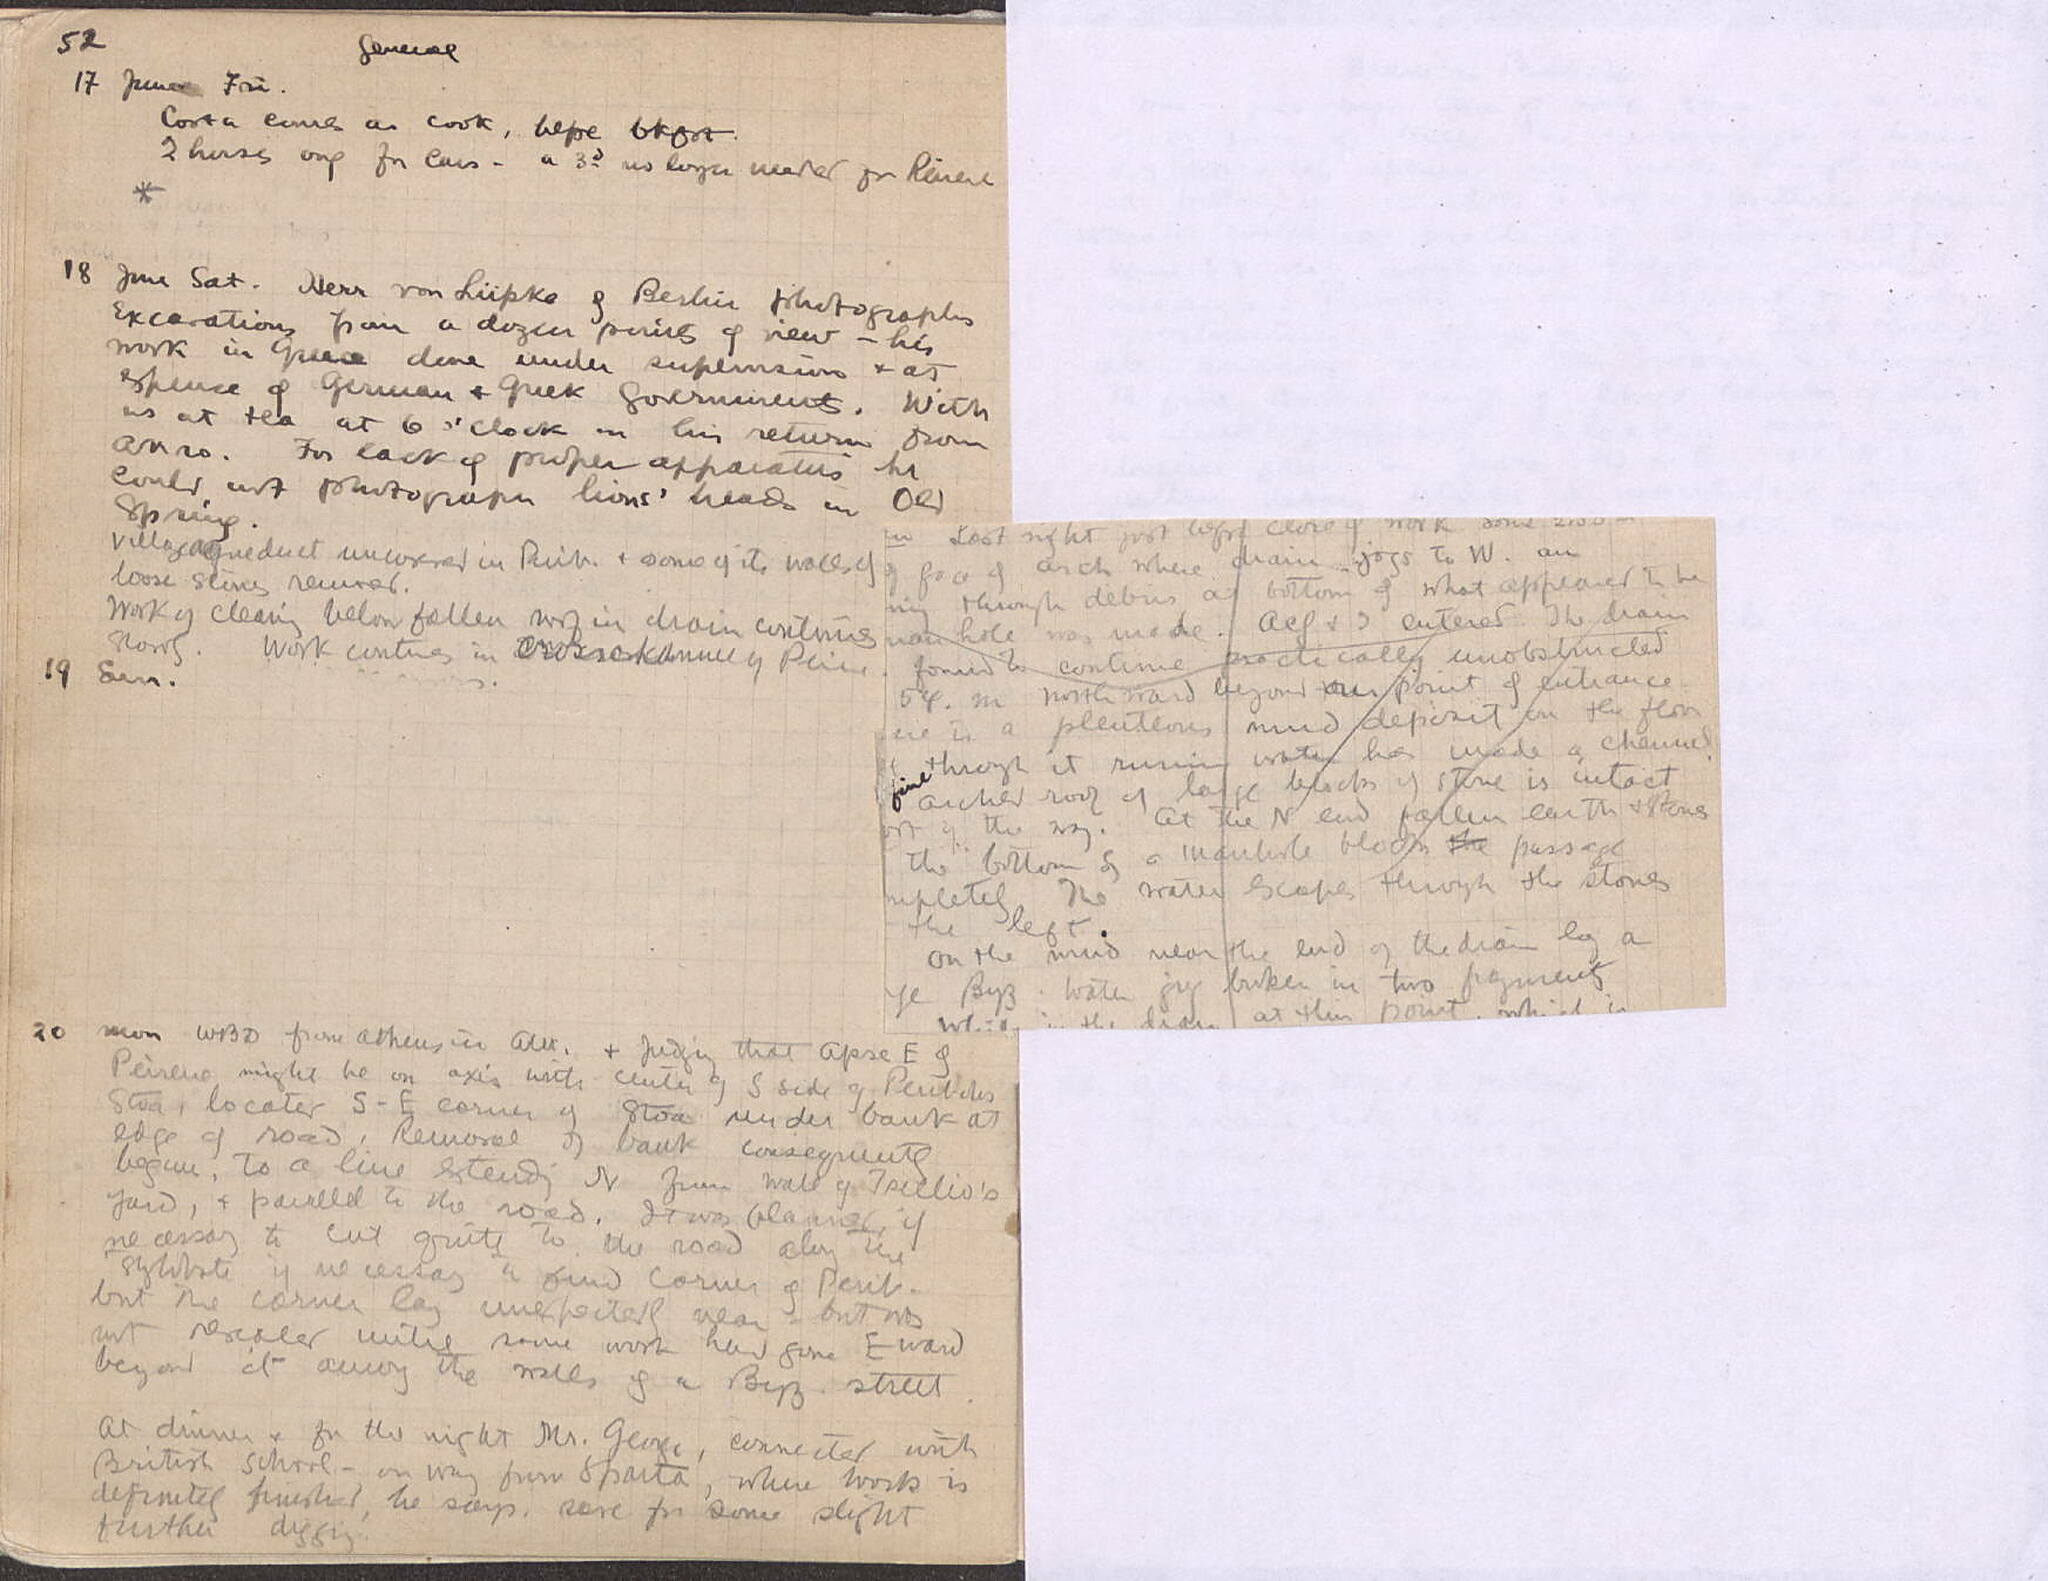 52 General
17 June Fri.
Costa comes as cook, before bkfst.
2 horses only for cars - a 3d no longer needed for Peirene
*
18 June Sat. Herr von Lüpke of Berlin photographs
Excavations from a dozen points of view - his
work in Greece done under supervision + at
expense of German + Greek Governments. With
us at tea at 6 o'clock on his return from
For lack of proper apparatus he
could not photograph lions' heads in Old
Spring.
Village aqueduct uncovered in Perib. + some of its walls of
loose stones removed.
Work of clearing below fallen roof in drain continues
slowly. Work continues in of Peirene.
19 Sun.
Last night just before close of work some
of face of arch where drain jogs to W. an
through debris at bottom of what appeared to be
manhole was made. entered. The drain
found to continue practically unobstructed
54. m northward beyond our point of entrance
is a plenteous mud deposit on the floor
through it running water has made a channel.
fine arched roof of large blocks of stone is intact
of the way. At the N end fallen earth + stones
the bottom of a manhole block the passage
The water escapes through the stones
the left.
On the mud near the end of the drain lay a
Byz. water jug broken in two fragments
in the drain at this point, which is
20 Mon WBD from Athens in aut. + judging that apse E of
Peirene might be on axis with center of S side of Peribolos
Stoa, locates S-E corner of Stoa under bank at
edge of road. Removal of bank consequently
begun, to a line extending N from wall of Tsellio's
yard, + parallel to the road. It was planned, if
necessary to cut quite to the road along the
stylobate if necessary to find corner of Perib.
but the corner lay unexpectedly near - but was
not revealed until some work had gone E ward
beyond it among the walls of a Byz. street.
At dinner + for the night Mr. George, connected with
British School - on way from Sparta, where work is
definitely finished, he says, save for some slight
further digging.